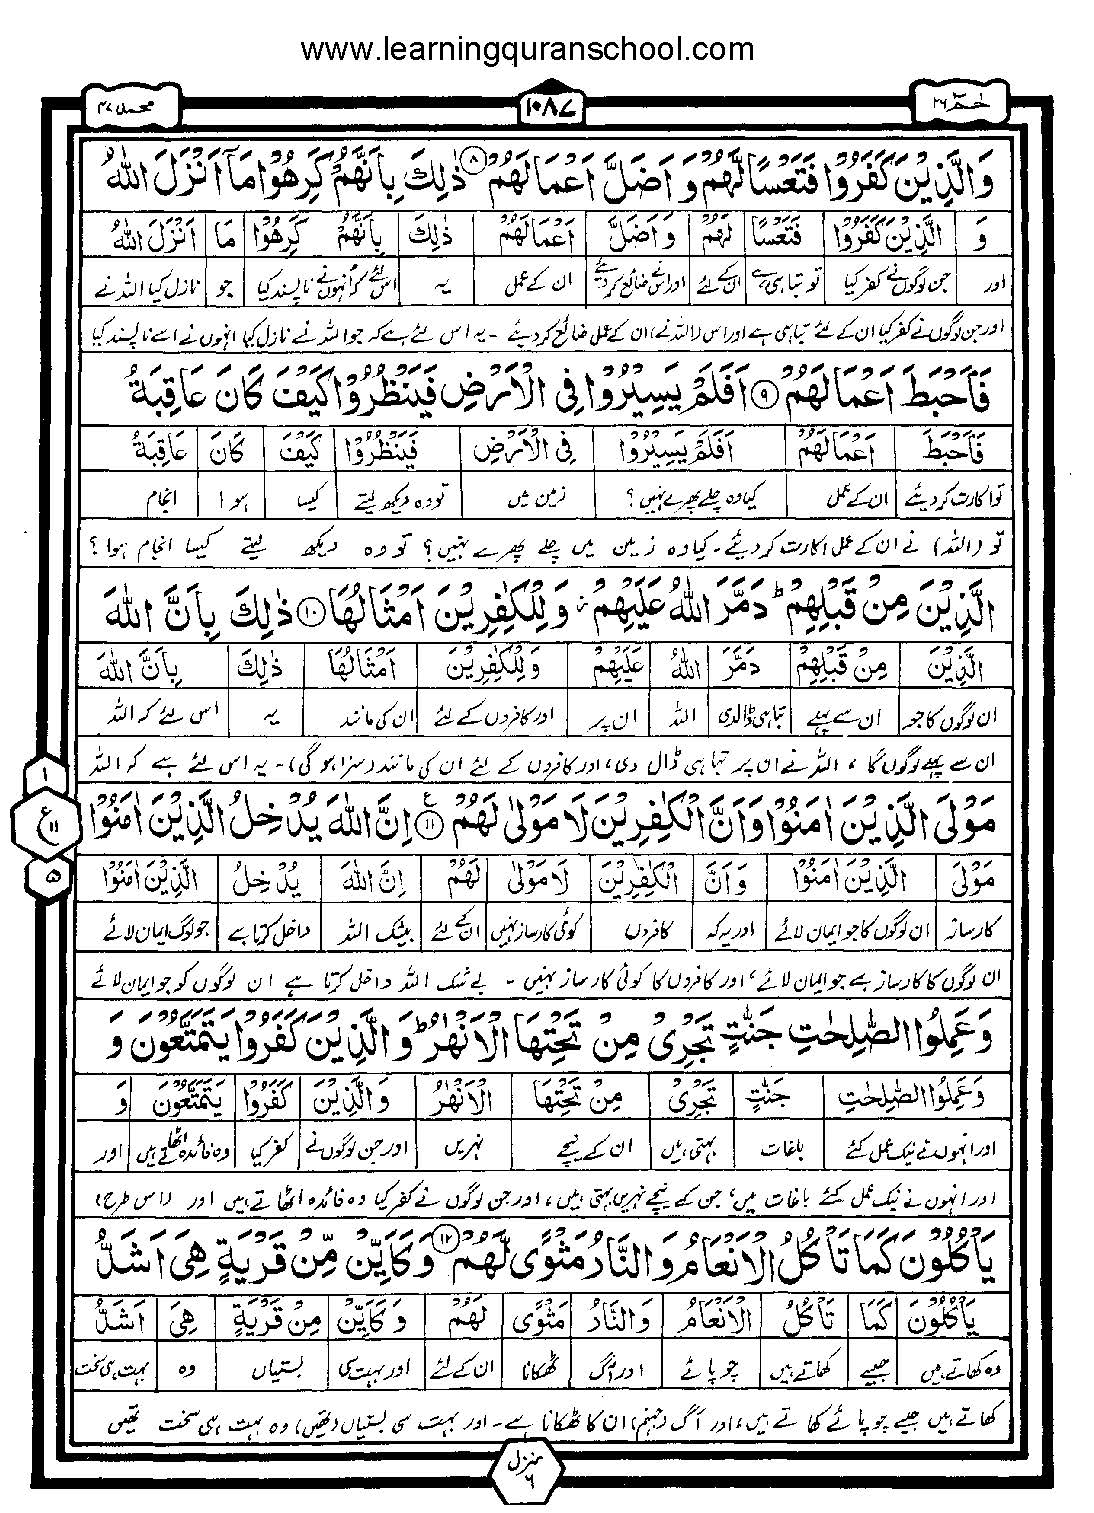 www.learningquranschool.com
محمد ۴۷
۱۰۸۷
حٰمٓ ۲۶
وَالَّذِيْنَ كَفَرُوْا فَتَعْسًا لَّهُمْ وَاَضَلَّ اَعْمَالَهُمْ ۸ ذٰلِكَ بِاَنَّهُمْ كَرِهُوْا مَآ اَنْزَلَ اللّٰهُ
وَ الَّذِيْنَ كَفَرُوْا فَتَعْسًا لَهُمْ وَاَضَلَّ اَعْمَالَهُمْ ذٰلِكَ بِاَنَّهُمْ كَرِهُوْا مَا اَنْزَلَ اللّٰهُ
اور جن لوگوں نے کفر کیا تو تباہی ہے ان کے لئے اور اس نے ضائع کر دیئے ان کے عمل یہ اس لئے کہ انہوں نے ناپسند کیا جو نازل کیا اللہ نے
اور جن لوگوں نے کفر کیا ان کے لئے تباہی ہے اور اس (اللہ نے) ان کے عمل ضائع کر دیئے - یہ اس لئے ہے کہ جو اللہ نے نازل کیا انہوں نے اسے ناپسند کیا
فَاَحْبَطَ اَعْمَالَهُمْ ۹ اَفَلَمْ يَسِيْرُوْا فِى الْاَرْضِ فَيَنْظُرُوْا كَيْفَ كَانَ عَاقِبَةُ
فَاَحْبَطَ اَعْمَالَهُمْ اَفَلَمْ يَسِيْرُوْا فِى الْاَرْضِ فَيَنْظُرُوْا كَيْفَ كَانَ عَاقِبَةُ
تو اکارت کر دیئے ان کے عمل کیا وہ چلے پھرے نہیں؟ زمین میں تو وہ دیکھ لیتے کیسا ہوا انجام
تو (اللہ) نے ان کے عمل اکارت کر دیئے - کیا وہ زمین میں چلے پھرے نہیں؟ تو وہ دیکھ لیتے کیسا انجام ہوا؟
الَّذِيْنَ مِنْ قَبْلِهِمْ ؕ دَمَّرَ اللّٰهُ عَلَيْهِمْ ؗ وَلِلْكٰفِرِيْنَ اَمْثَالُهَا ۱۰ ذٰلِكَ بِاَنَّ اللّٰهَ
الَّذِيْنَ مِنْ قَبْلِهِمْ دَمَّرَ اللّٰهُ عَلَيْهِمْ وَلِلْكٰفِرِيْنَ اَمْثَالُهَا ذٰلِكَ بِاَنَّ اللّٰهَ
ان لوگوں کا جو ان سے پہلے تباہی ڈالدی اللہ ان پر اور کافروں کے لئے ان کی مانند یہ اس لئے کہ اللہ
ان سے پہلے لوگوں کا، اللہ نے ان پر تباہی ڈال دی، اور کافروں کے لئے ان کی مانند (سزا ہو گی) - یہ اس لئے ہے کہ اللہ
مَوْلَى الَّذِيْنَ اٰمَنُوْا وَاَنَّ الْكٰفِرِيْنَ لَا مَوْلٰى لَهُمْ ۱۱ ع اِنَّ اللّٰهَ يُدْخِلُ الَّذِيْنَ اٰمَنُوْا
۱
ع ۱۱
۵
مَوْلَى الَّذِيْنَ اٰمَنُوْا وَاَنَّ الْكٰفِرِيْنَ لَا مَوْلٰى لَهُمْ اِنَّ اللّٰهَ يُدْخِلُ الَّذِيْنَ اٰمَنُوْا
کارساز ان لوگوں کا جو ایمان لائے اور یہ کہ کافروں کوئی کارساز نہیں ان کے لئے بیشک اللہ داخل کرتا ہے جو لوگ ایمان لائے
ان لوگوں کا کارساز ہے جو ایمان لائے، اور کافروں کا کوئی کارساز نہیں - بے شک اللہ داخل کرتا ہے ان لوگوں کو جو ایمان لائے
وَعَمِلُوا الصّٰلِحٰتِ جَنّٰتٍ تَجْرِىْ مِنْ تَحْتِهَا الْاَنْهٰرُ ؕ وَالَّذِيْنَ كَفَرُوْا يَتَمَتَّعُوْنَ وَ
وَعَمِلُوا الصّٰلِحٰتِ جَنّٰتٍ تَجْرِىْ مِنْ تَحْتِهَا الْاَنْهٰرُ وَالَّذِيْنَ كَفَرُوْا يَتَمَتَّعُوْنَ وَ
اور انہوں نے نیک عمل کئے باغات بہتی ہیں ان کے نیچے نہریں اور جن لوگوں نے کفر کیا وہ فائدہ اٹھاتے ہیں اور
اور انہوں نے نیک عمل کئے باغات میں، جن کے نیچے نہریں بہتی ہیں، اور جن لوگوں نے کفر کیا وہ فائدہ اٹھاتے ہیں اور (اس طرح)
يَاْكُلُوْنَ كَمَا تَاْكُلُ الْاَنْعَامُ وَالنَّارُ مَثْوًى لَّهُمْ ۱۲ وَكَاَيِّنْ مِّنْ قَرْيَةٍ هِىَ اَشَدُّ
يَاْكُلُوْنَ كَمَا تَاْكُلُ الْاَنْعَامُ وَالنَّارُ مَثْوًى لَهُمْ وَكَاَيِّنْ مِنْ قَرْيَةٍ هِىَ اَشَدُّ
وہ کھاتے ہیں جیسے کھاتے ہیں چوپائے اور آگ ٹھکانا ان کے لئے اور بہت سی بستیاں وہ بہت ہی سخت
کھاتے ہیں جیسے چوپائے کھاتے ہیں، اور آگ (جہنم) ان کا ٹھکانا ہے - اور بہت سی بستیاں (تھیں) وہ بہت ہی سخت تھیں
منزل ۶